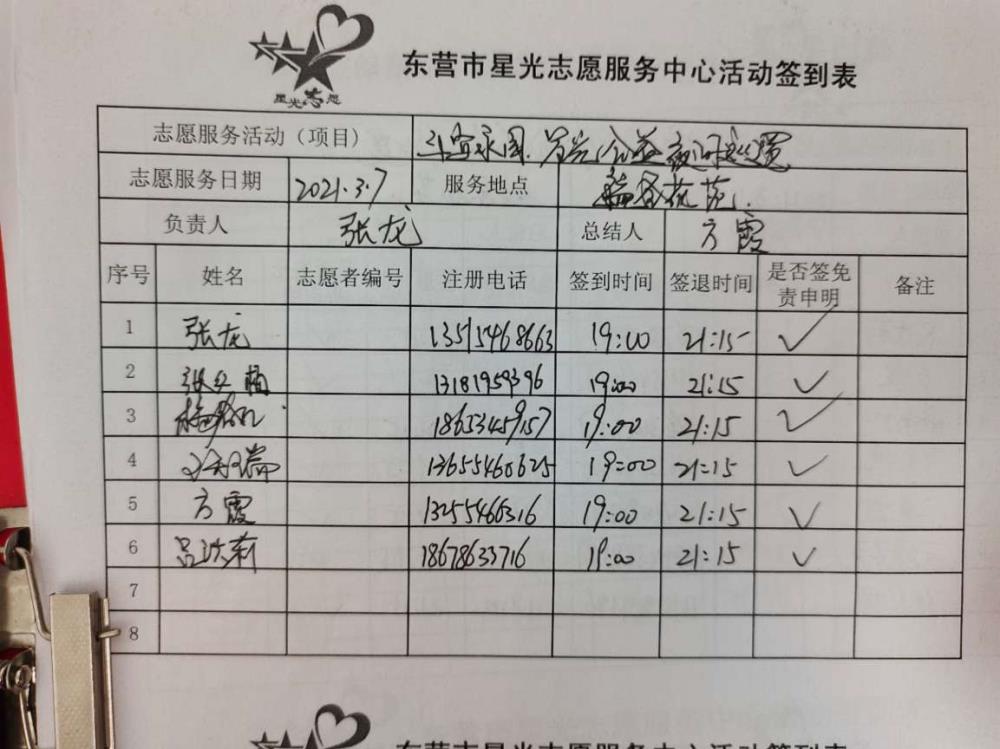 星光志愿
东营市星光志愿服务中心活动签到表
志愿服务活动（项目） 平安家园 星光公益夜间巡逻
志愿服务日期 2021.3.7 服务地点
负责人 张龙 总结人 方霞
序号 姓名 志愿者编号 注册电话 签到时间 签退时间 是否签免责申明 备注
1 张龙 13515468663 19:00 21:15 ✓
2 13181959396 19:00 21:15 ✓
3 18653459157 19:00 21:15 ✓
4 13655460625 19:00 21:15 ✓
5 方霞 13255466316 19:00 21:15 ✓
6 吕洪莉 18678633716 19:00 21:15 ✓
7
8
东营市星光志愿服务中心活动签到表